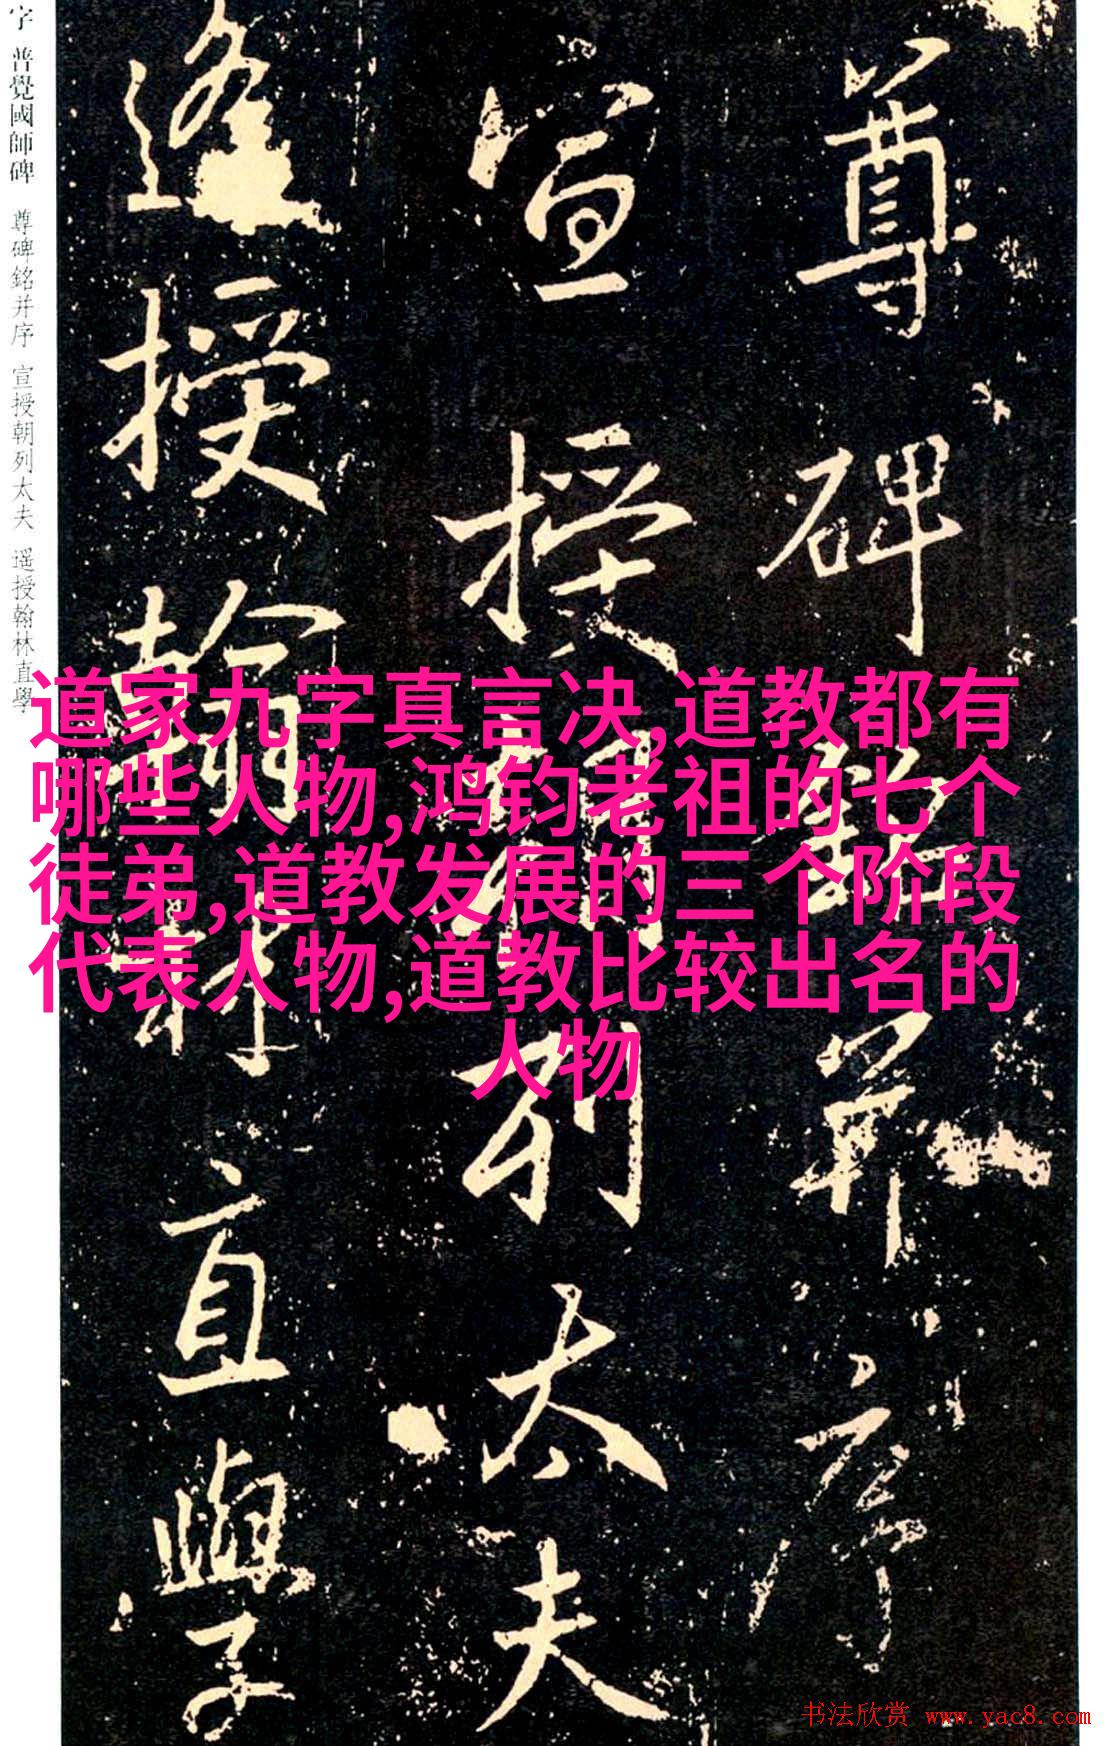 字 普覺國師碑 尊碑銘并序 宣授朝列太夫 遥授翰林直學
尊碑銘并序
宣授朝列太夫
遙授翰林直學
道家九字真言决,道教都有
哪些人物,鸿钧老祖的七个
徒弟,道教发展的三个阶段
代表人物,道教比较出名的
人物
书法欣赏 www.yac8.com